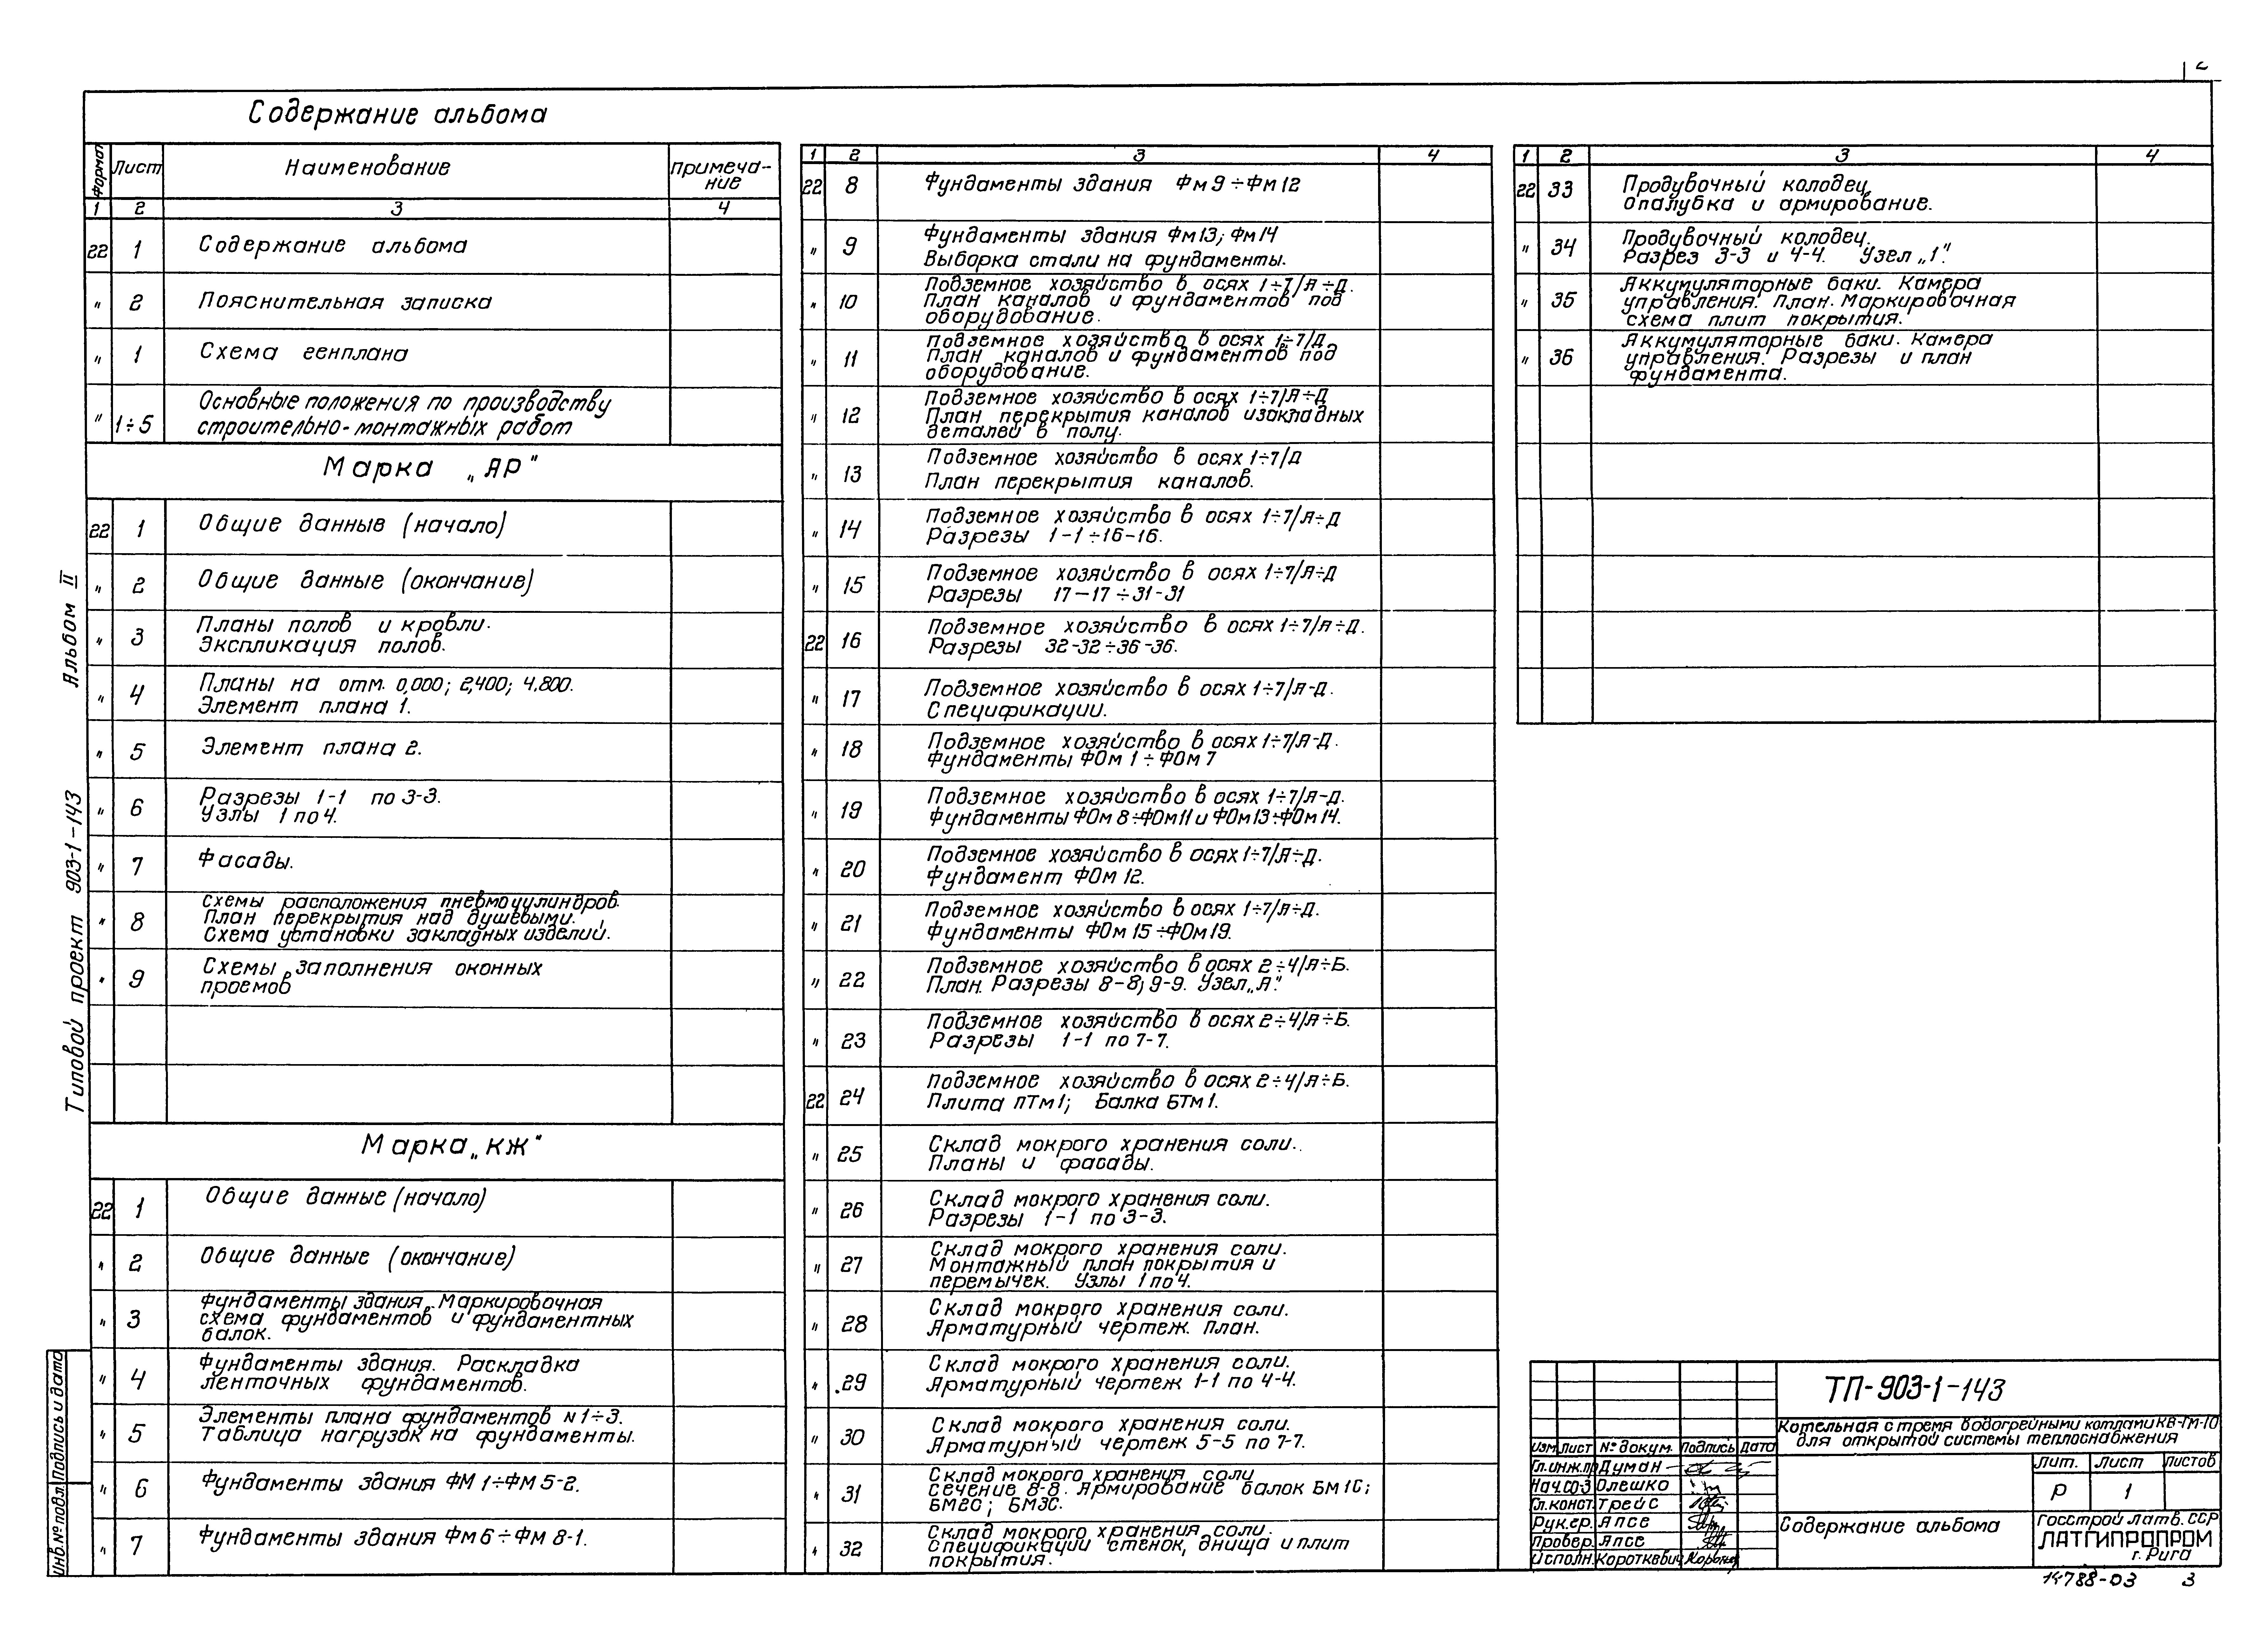 2
Содержание альбома
Формат Лист Наименование Примеча-
ние
1 2 3 4
22 1 Содержание альбома
" 2 Пояснительная записка
" 1 Схема генплана
" 1÷5 Основные положения по производству
строительно-монтажных работ
Марка „АР"
22 1 Общие данные (начало)
" 2 Общие данные (окончание)
" 3 Планы полов и кровли.
Экспликация полов.
" 4 Планы на отм. 0,000; 2,400; 4.800.
Элемент плана 1.
" 5 Элемент плана 2.
" 6 Разрезы 1-1 по 3-3.
Узлы 1 по 4.
" 7 Фасады.
" 8 Схемы расположения пневмоцилиндров.
План перекрытия над душевыми.
Схема установки закладных изделий.
" 9 Схемы заполнения оконных
проемов
Марка „КЖ"
22 1 Общие данные (начало)
" 2 Общие данные (окончание)
" 3 Фундаменты здания. Маркировочная
схема фундаментов и фундаментных
балок.
" 4 Фундаменты здания. Раскладка
ленточных фундаментов.
" 5 Элементы плана фундаментов N1÷3.
Таблица нагрузок на фундаменты.
" 6 Фундаменты здания ФМ 1÷ФМ 5-2.
" 7 Фундаменты здания Фм 6÷Фм 8-1.
1 2 3 4
22 8 Фундаменты здания Фм 9÷Фм 12
" 9 Фундаменты здания Фм13; Фм14
Выборка стали на фундаменты.
" 10 Подземное хозяйство в осях 1÷7/А÷Д.
План каналов и фундаментов под
оборудование.
" 11 Подземное хозяйство в осях 1÷7/Д
План каналов и фундаментов под
оборудование.
" 12 Подземное хозяйство в осях 1÷7/А÷Д
План перекрытия каналов и закладных
деталей в полу.
" 13 Подземное хозяйство в осях 1÷7/Д
План перекрытия каналов.
" 14 Подземное хозяйство в осях 1÷7/А÷Д
Разрезы 1-1÷16-16.
" 15 Подземное хозяйство в осях 1÷7/А÷Д
Разрезы 17-17÷31-31
22 16 Подземное хозяйство в осях 1÷7/А÷Д.
Разрезы 32-32÷36-36.
" 17 Подземное хозяйство в осях 1÷7/А-Д.
Спецификации.
" 18 Подземное хозяйство в осях 1÷7/А-Д.
Фундаменты ФОм 1÷ФОм 7
" 19 Подземное хозяйство в осях 1÷7/А-Д.
Фундаменты ФОм 8÷ФОм11 и ФОм13÷ФОм14.
" 20 Подземное хозяйство в осях 1÷7/А÷Д.
Фундамент ФОм 12.
" 21 Подземное хозяйство в осях 1÷7/А÷Д.
Фундаменты ФОм 15÷ФОм19.
" 22 Подземное хозяйство в осях 2÷4/А÷Б.
План. Разрезы 8-8; 9-9. Узел „А".
" 23 Подземное хозяйство в осях 2÷4/А÷Б.
Разрезы 1-1 по 7-7.
22 24 Подземное хозяйство в осях 2÷4/А÷Б.
Плита ПТм1; Балка БТм1.
" 25 Склад мокрого хранения соли.
Планы и фасады.
" 26 Склад мокрого хранения соли.
Разрезы 1-1 по 3-3.
" 27 Склад мокрого хранения соли.
Монтажный план покрытия и
перемычек. Узлы 1 по 4.
" 28 Склад мокрого хранения соли.
Арматурный чертеж. План.
" 29 Склад мокрого хранения соли.
Арматурный чертеж 1-1 по 4-4.
" 30 Склад мокрого хранения соли.
Арматурный чертеж 5-5 по 7-7.
" 31 Склад мокрого хранения соли
Сечение 8-8. Армирование балок БМ1С;
БМ2С; БМ3С.
" 32 Склад мокрого хранения соли.
Спецификации стенок, днища и плит
покрытия.
1 2 3 4
22 33 Продувочный колодец.
Опалубка и армирование.
" 34 Продувочный колодец.
Разрез 3-3 и 4-4. Узел „1".
" 35 Аккумуляторные баки. Камера
управления. План. Маркировочная
схема плит покрытия.
" 36 Аккумуляторные баки. Камера
управления. Разрезы и план
фундамента.
Типовой проект 903-1-143 Альбом II
Инв.№ подл. Подпись и дата
ТП-903-1-143
Котельная с тремя водогрейными котлами КВ-ГМ-10
для открытой системы теплоснабжения
Изм. Лист № докум. Подпись Дата
Гл.инж.пр Думан
Нач.со-3 Олешко
Гл.конст. Трейс
Рук.гр. Апсе
Провер. Апсе
Исполн. Короткевич
Лит. Лист Листов
Р 1
Содержание альбома
Госстрой Латв.ССР
ЛАТГИПРОПРОМ
г. Рига
14788-03 3